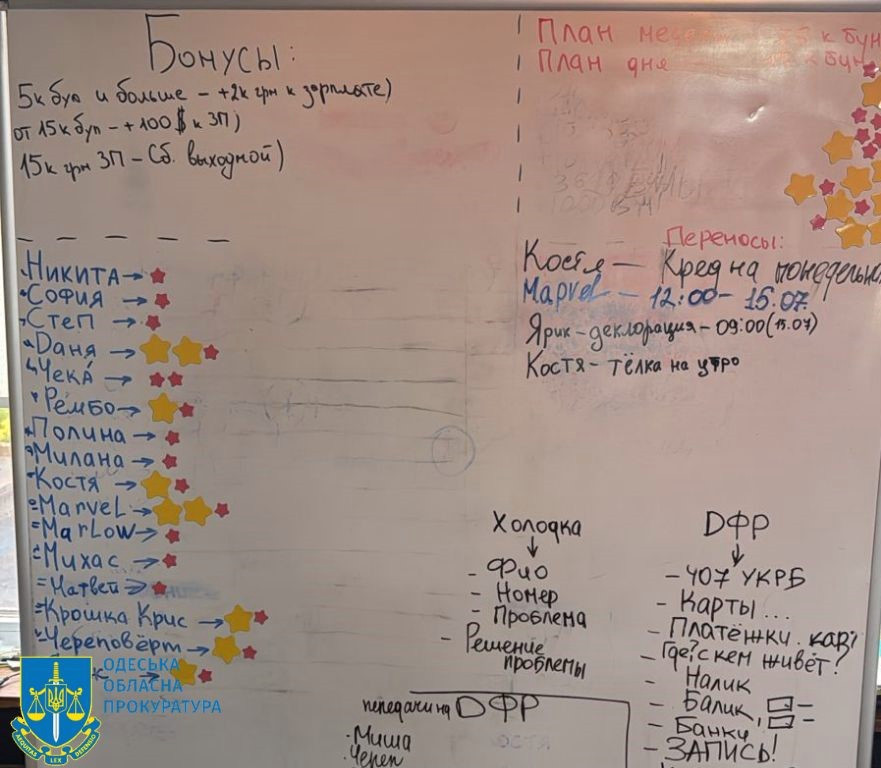 Бонусы:
5к буп и больше – +2к грн к зарплате)
от 15к буп – +100$ к ЗП)
15к грн ЗП – Сб. выходной)
План
План дня к бун
Переносы:
Костя — Кред на
Marvel — 12:00 – 15.07.
Ярик – деклорация – 09:00 (15.07)
Костя – тёлка на утро
Никита →
София →
Степ →
Даня →
Чека́ →
Рембо →
Полина →
Милана →
Костя →
Marvel →
Marlow →
Михас →
Матвей →
Крошка Крис →
Череповёрт →
Холодка
↓
– Фио
– Номер
– Проблема
– Решение
проблемы
ДФР
↓
– УКРБ
– Карты...
– Платёжки.
– Где? с кем живёт?
– Налик
– Балик,
– Банки,
– ЗАПИСЬ!
передачи на ДФР
· Миша
· Череп
ОДЕСЬКА
ОБЛАСНА
ПРОКУРАТУРА
AEQUITAS LEX DEFENSIO